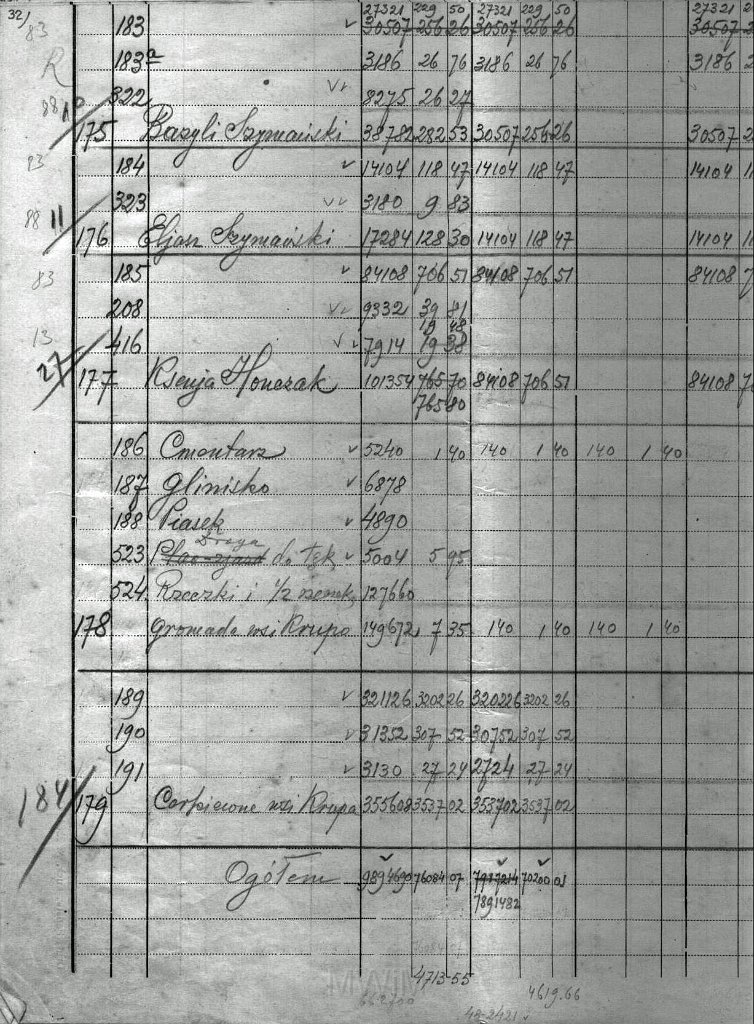 32/
27321 229 50 27321 229 50 27321
83 183 30507 256 26 30507 256 26 30507
R 183a 3186 26 76 3186 26 76 3186
88 322 8275 26 27
175 Bazyli Szymański 38782 282 53 30507 256 26 30507
184 14104 118 47 14104 118 47 14104
323 3180 9 83
88 11
176 Eljasz Szymański 17284 128 30 14104 118 47 14104
83 185 84108 706 51 84108 706 51 84108
208 9332 39 81
19 48
13 416 7914 19 38
27
177 Ksenja Honczak 101354 765 70 84108 706 51 84108
765 80
186 Cmentarz 5240 1 40 140 1 40 140 1 40
187 Glinisko 6878
188 Piasek 4890
Droga
523 do łąk 5004 5 95
524 Rzeczki i 1/2 127660
178 Gromada wsi Krupa 149672 7 35 140 1 40 140 1 40
189 321126 3202 26 320226 3202 26
190 31352 307 52 30752 307 52
191 3130 27 24 2724 27 24
184
179 wsi Krupa 355608 3537 02 353702 3537 02
Ogółem 9894690 76084 07 70200 01
7891482
4713-55
4619.66
662700